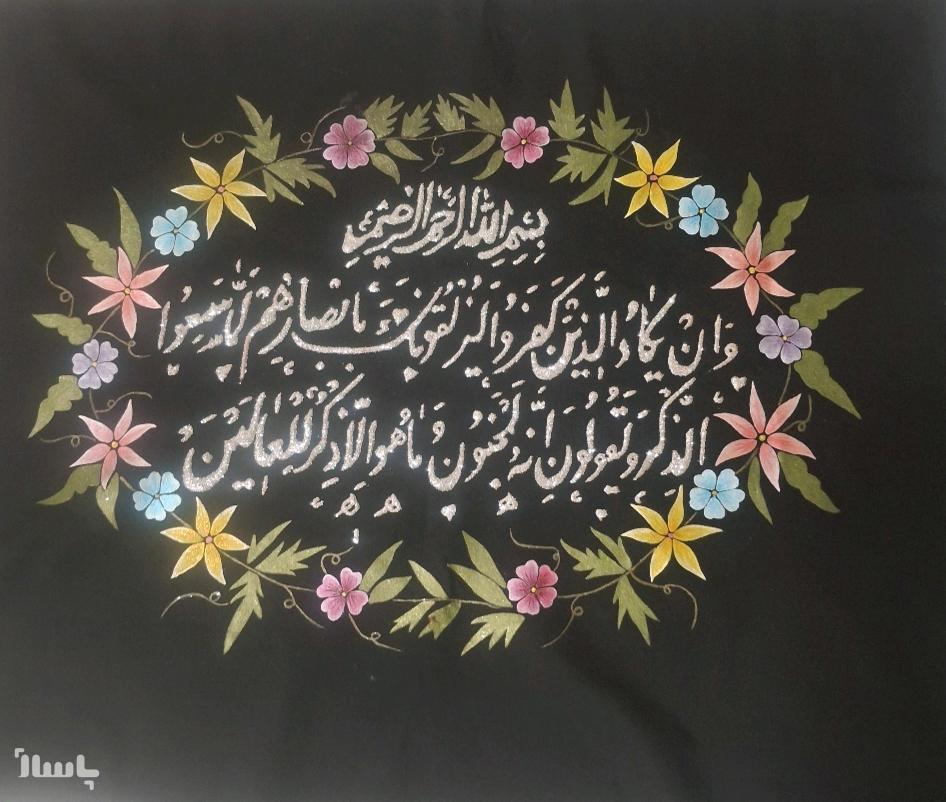 بِسْمِ اللهِ الرَّحْمنِ الرَّحِيْمِ
وَاِنْ يَكَادُ الَّذِيْنَ كَفَرُوا لَيُزْلِقُونَكَ بِاَبْصَارِهِمْ لَمَّا سَمِعُوا
الذِّكْرَ وَيَقُولُونَ اِنَّهُ لَمَجْنُونٌ وَمَا هُوَ اِلَّا ذِكْرٌ لِلْعَالَمِيْنَ
پاساژ